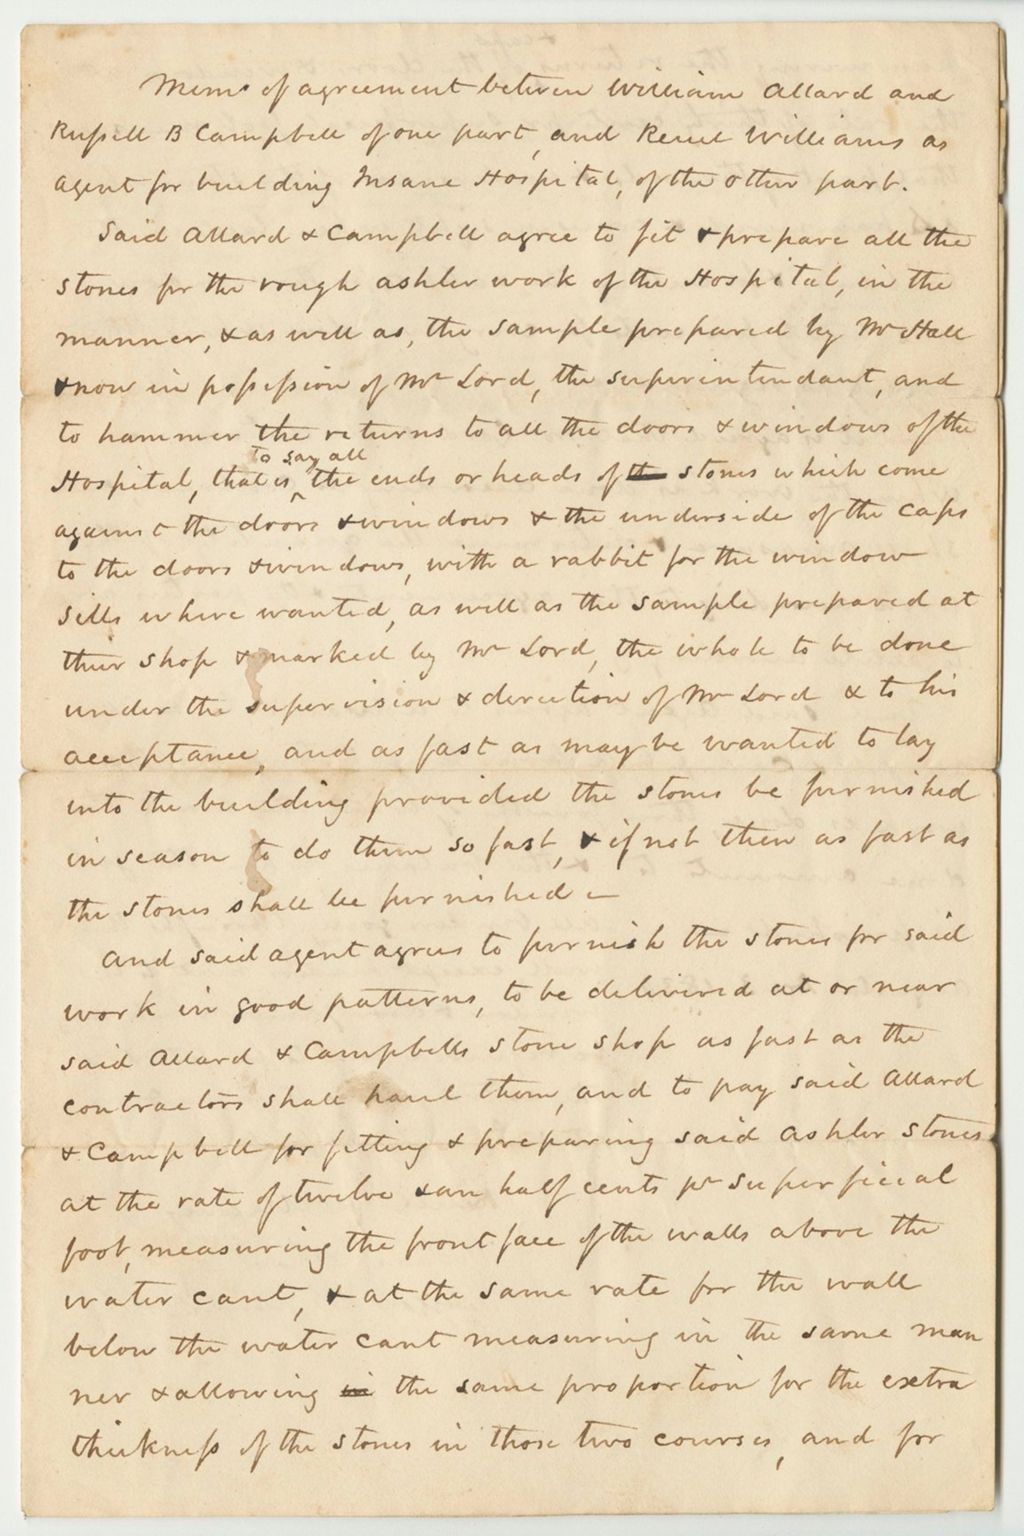 Mem<sup>o</sup> of agreement between William Allard and
Russell B Campbell of one part, and Reuel Williams as
agent for building Insane Hospital, of the other part.
Said Allard & Campbell agree to fit & prepare all the
stones for the rough ashler work of the Hospital, in the
manner, & as well as, the sample prepared by Mr Hall
& now in possession of Mr Lord, the superintendant, and
to hammer the returns to all the doors & windows of the
to say all
Hospital, that is, the ends or heads of the stones which come
against the doors & windows & the underside of the caps
to the doors & windows, with a rabbit for the window
sills where wanted, as well as the sample prepared at
their shop & marked by Mr Lord, the whole to be done
under the supervision & direction of Mr Lord & to his
acceptance, and as fast as may be wanted to lay
into the building provided the stones be furnished
in season to do them so fast, & if not then as fast as
the stones shall be furnished —
And said agent agrees to furnish the stones for said
work in good patterns, to be delivered at or near
said Allard & Campbells stone shop as fast as the
contractors shall haul them, and to pay said Allard
& Campbell for fitting & preparing said ashler stones
at the rate of twelve & an half cents pr superficial
foot, measuring the front face of the walls above the
water cant, & at the same rate for the wall
below the water cant measuring in the same man
ner & allowing in the same proportion for the extra
thickness of the stones in those two courses, and for